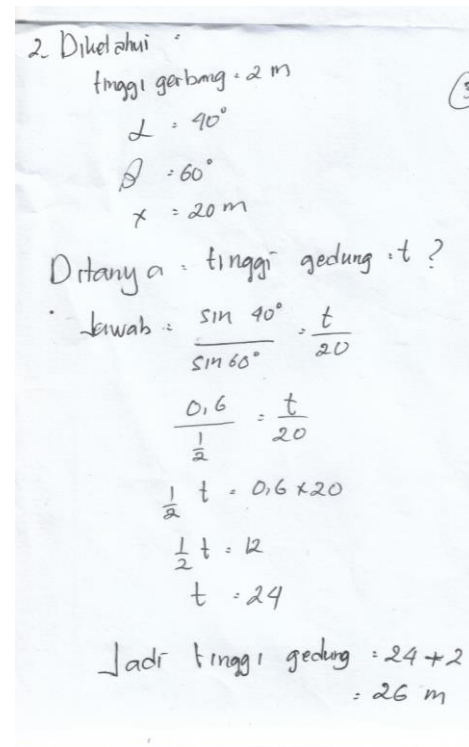 2. Diketahui :
tinggi gerbang = 2 m
α = 40°
β = 60°
x = 20 m
Ditanya = tinggi gedung = t ?
Jawab = sin 40° / sin 60° = t / 20
0,6 / 1/2 = t / 20
1/2 t = 0,6 x 20
1/2 t = 12
t = 24
Jadi tinggi gedung = 24 + 2
= 26 m